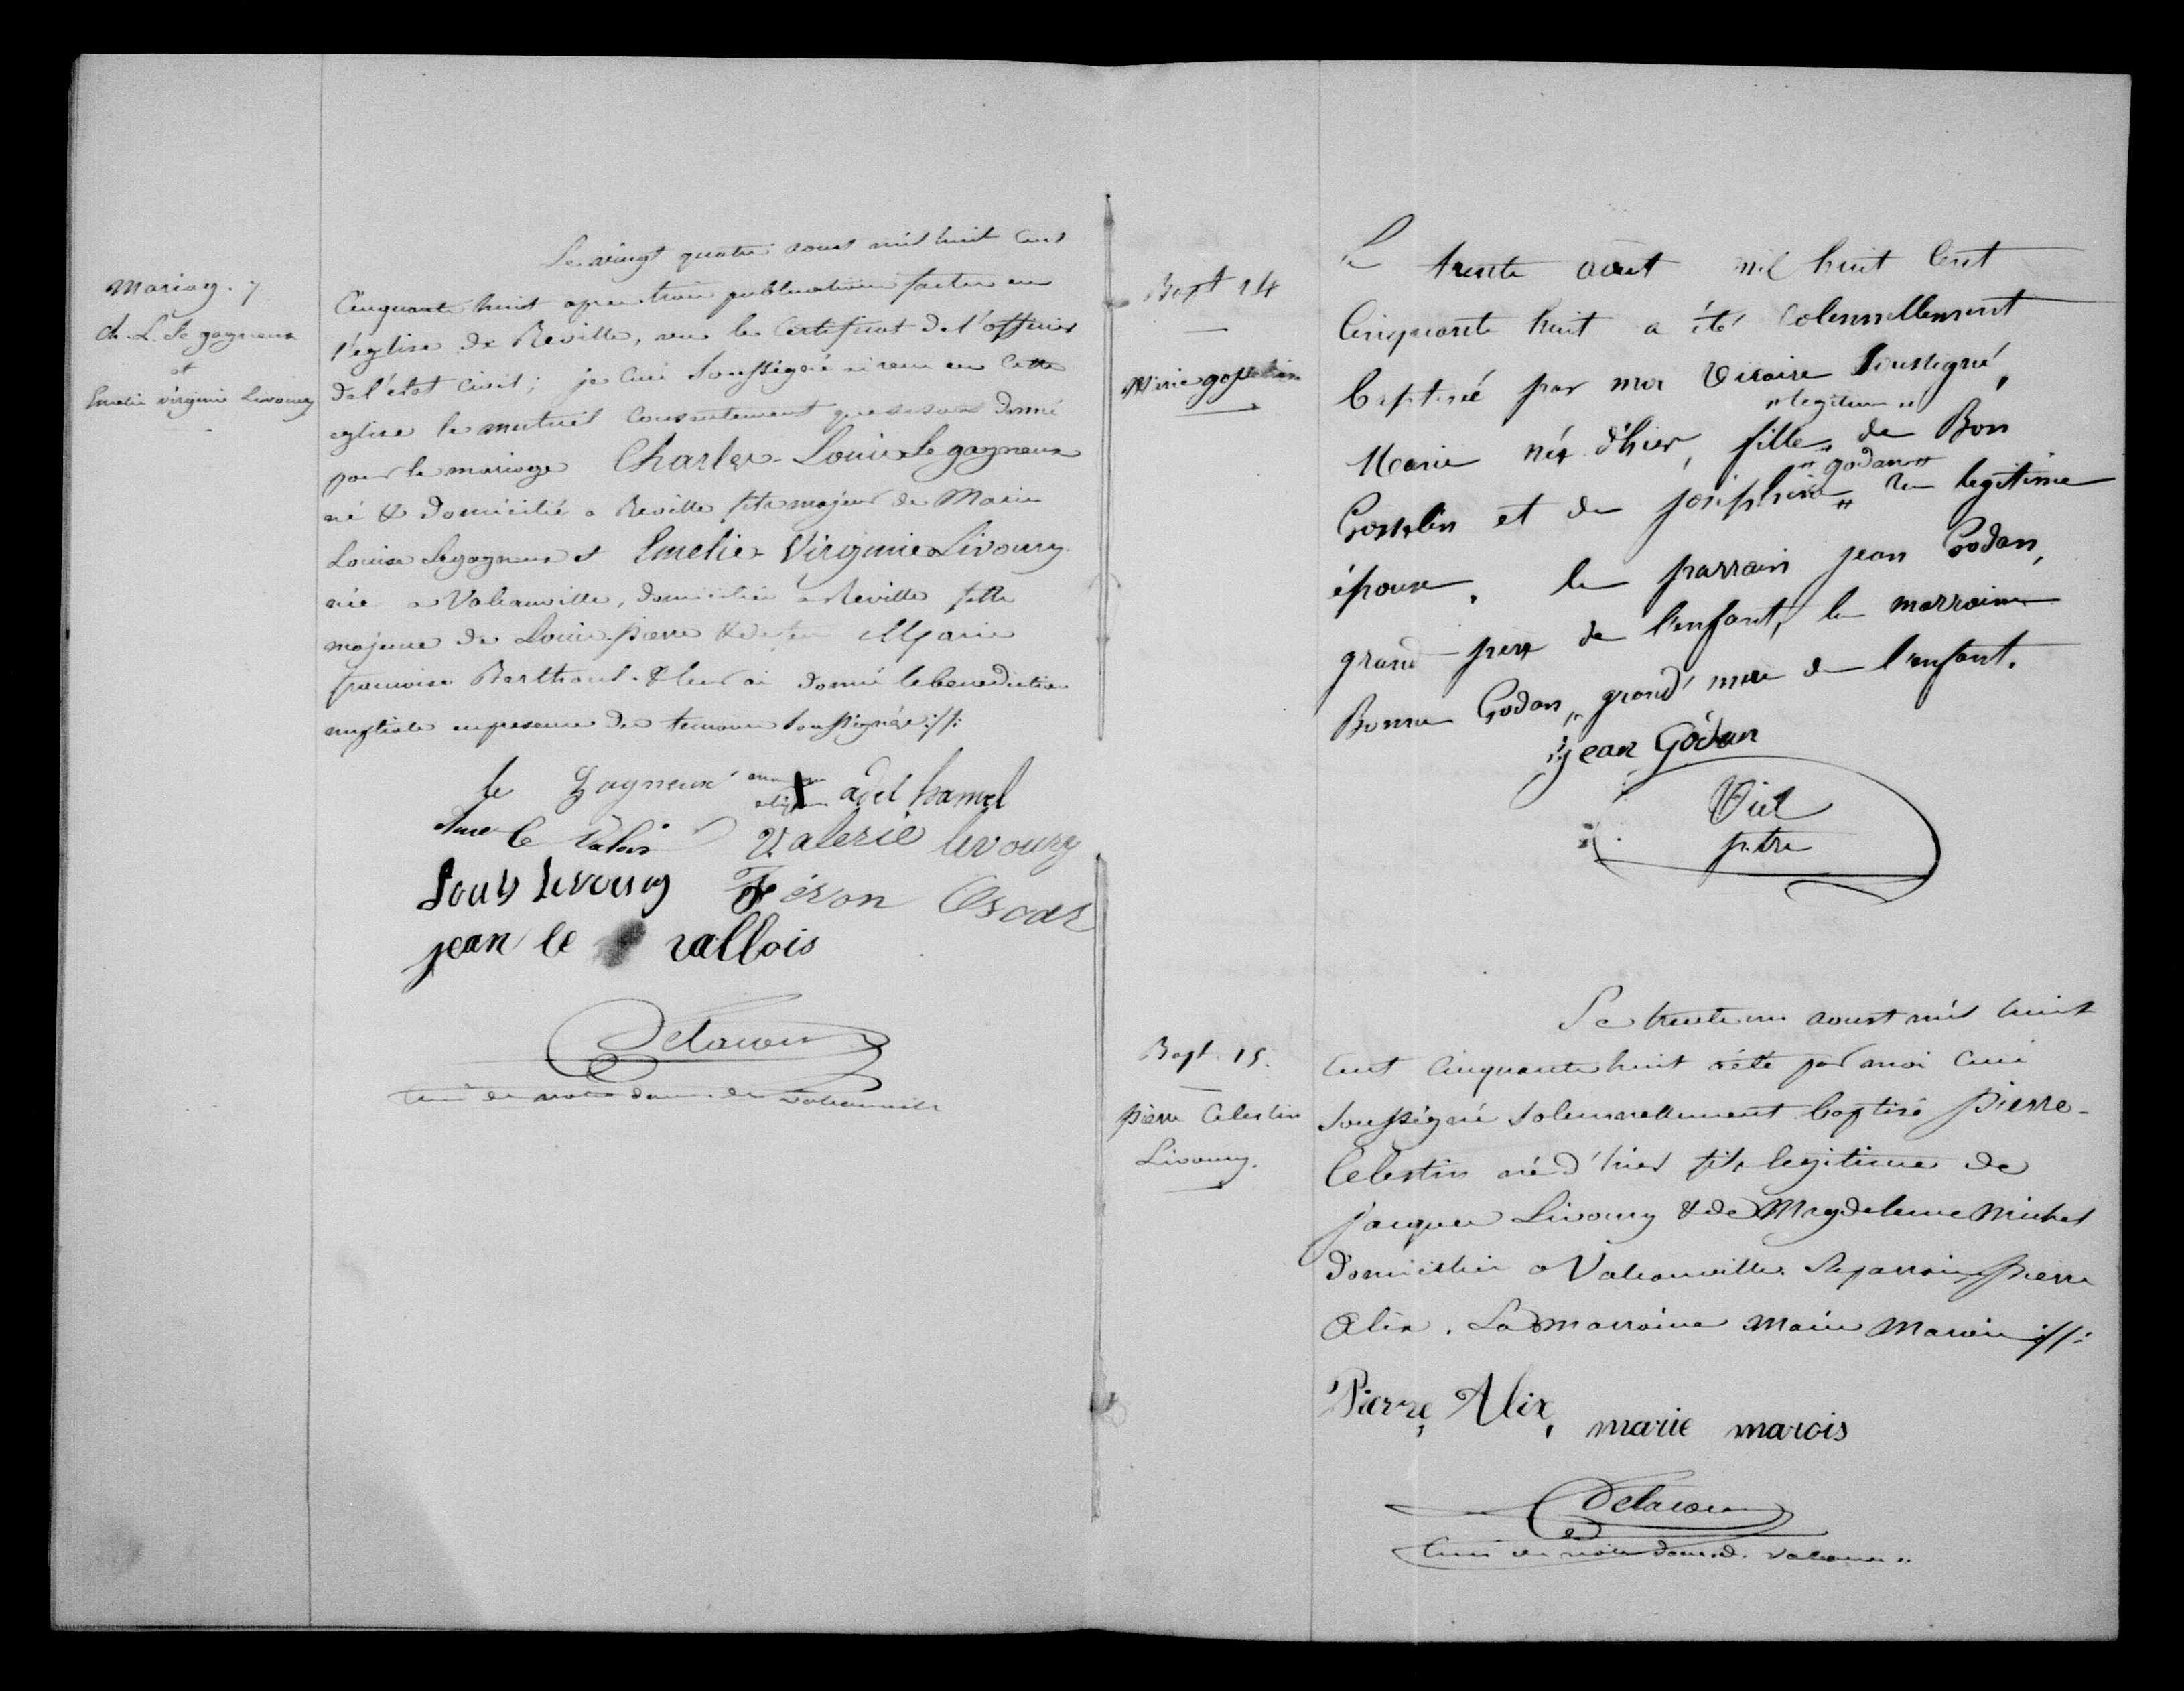 Mariag. 7
ch. L. Le gagneux
et
Emelie virginie Livoury
Le vingt quatre aoust mil huit cent
cinquante huit apres trois publications faites en
l'eglise de Reville, vu le certificat de l'officier
de l'etat civil; je curé soussigné ai recu en cette
eglise le mutuel consentement que se sont donné
pour le mariage Charles-Louis Le gagneux
né & domicilié a Reville fils majeur de Marie
Louise Legagneux et Emelie-Virginie Livoury
née a Valcanville, domiciliée a Reville fille
majeure de Louis-pierre & de feu Marie
francoise Barthoul. & leur ai donné la benediction
nuptiale en presence des temoins soussignés
le Gagneux adel hamel
le Valois Valerie livoury
Louis Livoury Féron Oscar
jean le vallois
Delacour
curé de notre dame de valcanville
Bapt 14
Marie gosselin
Le trente août mil huit cent
cinquante huit a été solennellement
baptisé par moi Vicaire soussigné,
"legitime"
Marie née d'hier, fille de Bon
"godan"
Gosselin et de joséphine sa legitime
épouse. le parrain jean Godan,
grand-père de l'enfant, la marraine
Bonne Godan, grand'mère de l'enfant.
jean Godan
Viel
ptre
Bapt. 15.
pierre Celestin
Livoury.
Le trente un aoust mil huit
cent cinquante huit a été par moi curé
soussigné solennellement baptisé Pierre-
Celestin né d'hier fils legitime de
jacques Livoury & de Magdeleine Michel
domiciliés a Valcanville. Le parrain Pierre
Alix. La marraine Marie Marois
Pierre Alix, marie marois
Delacour
curé de notre dame d. valcanv.